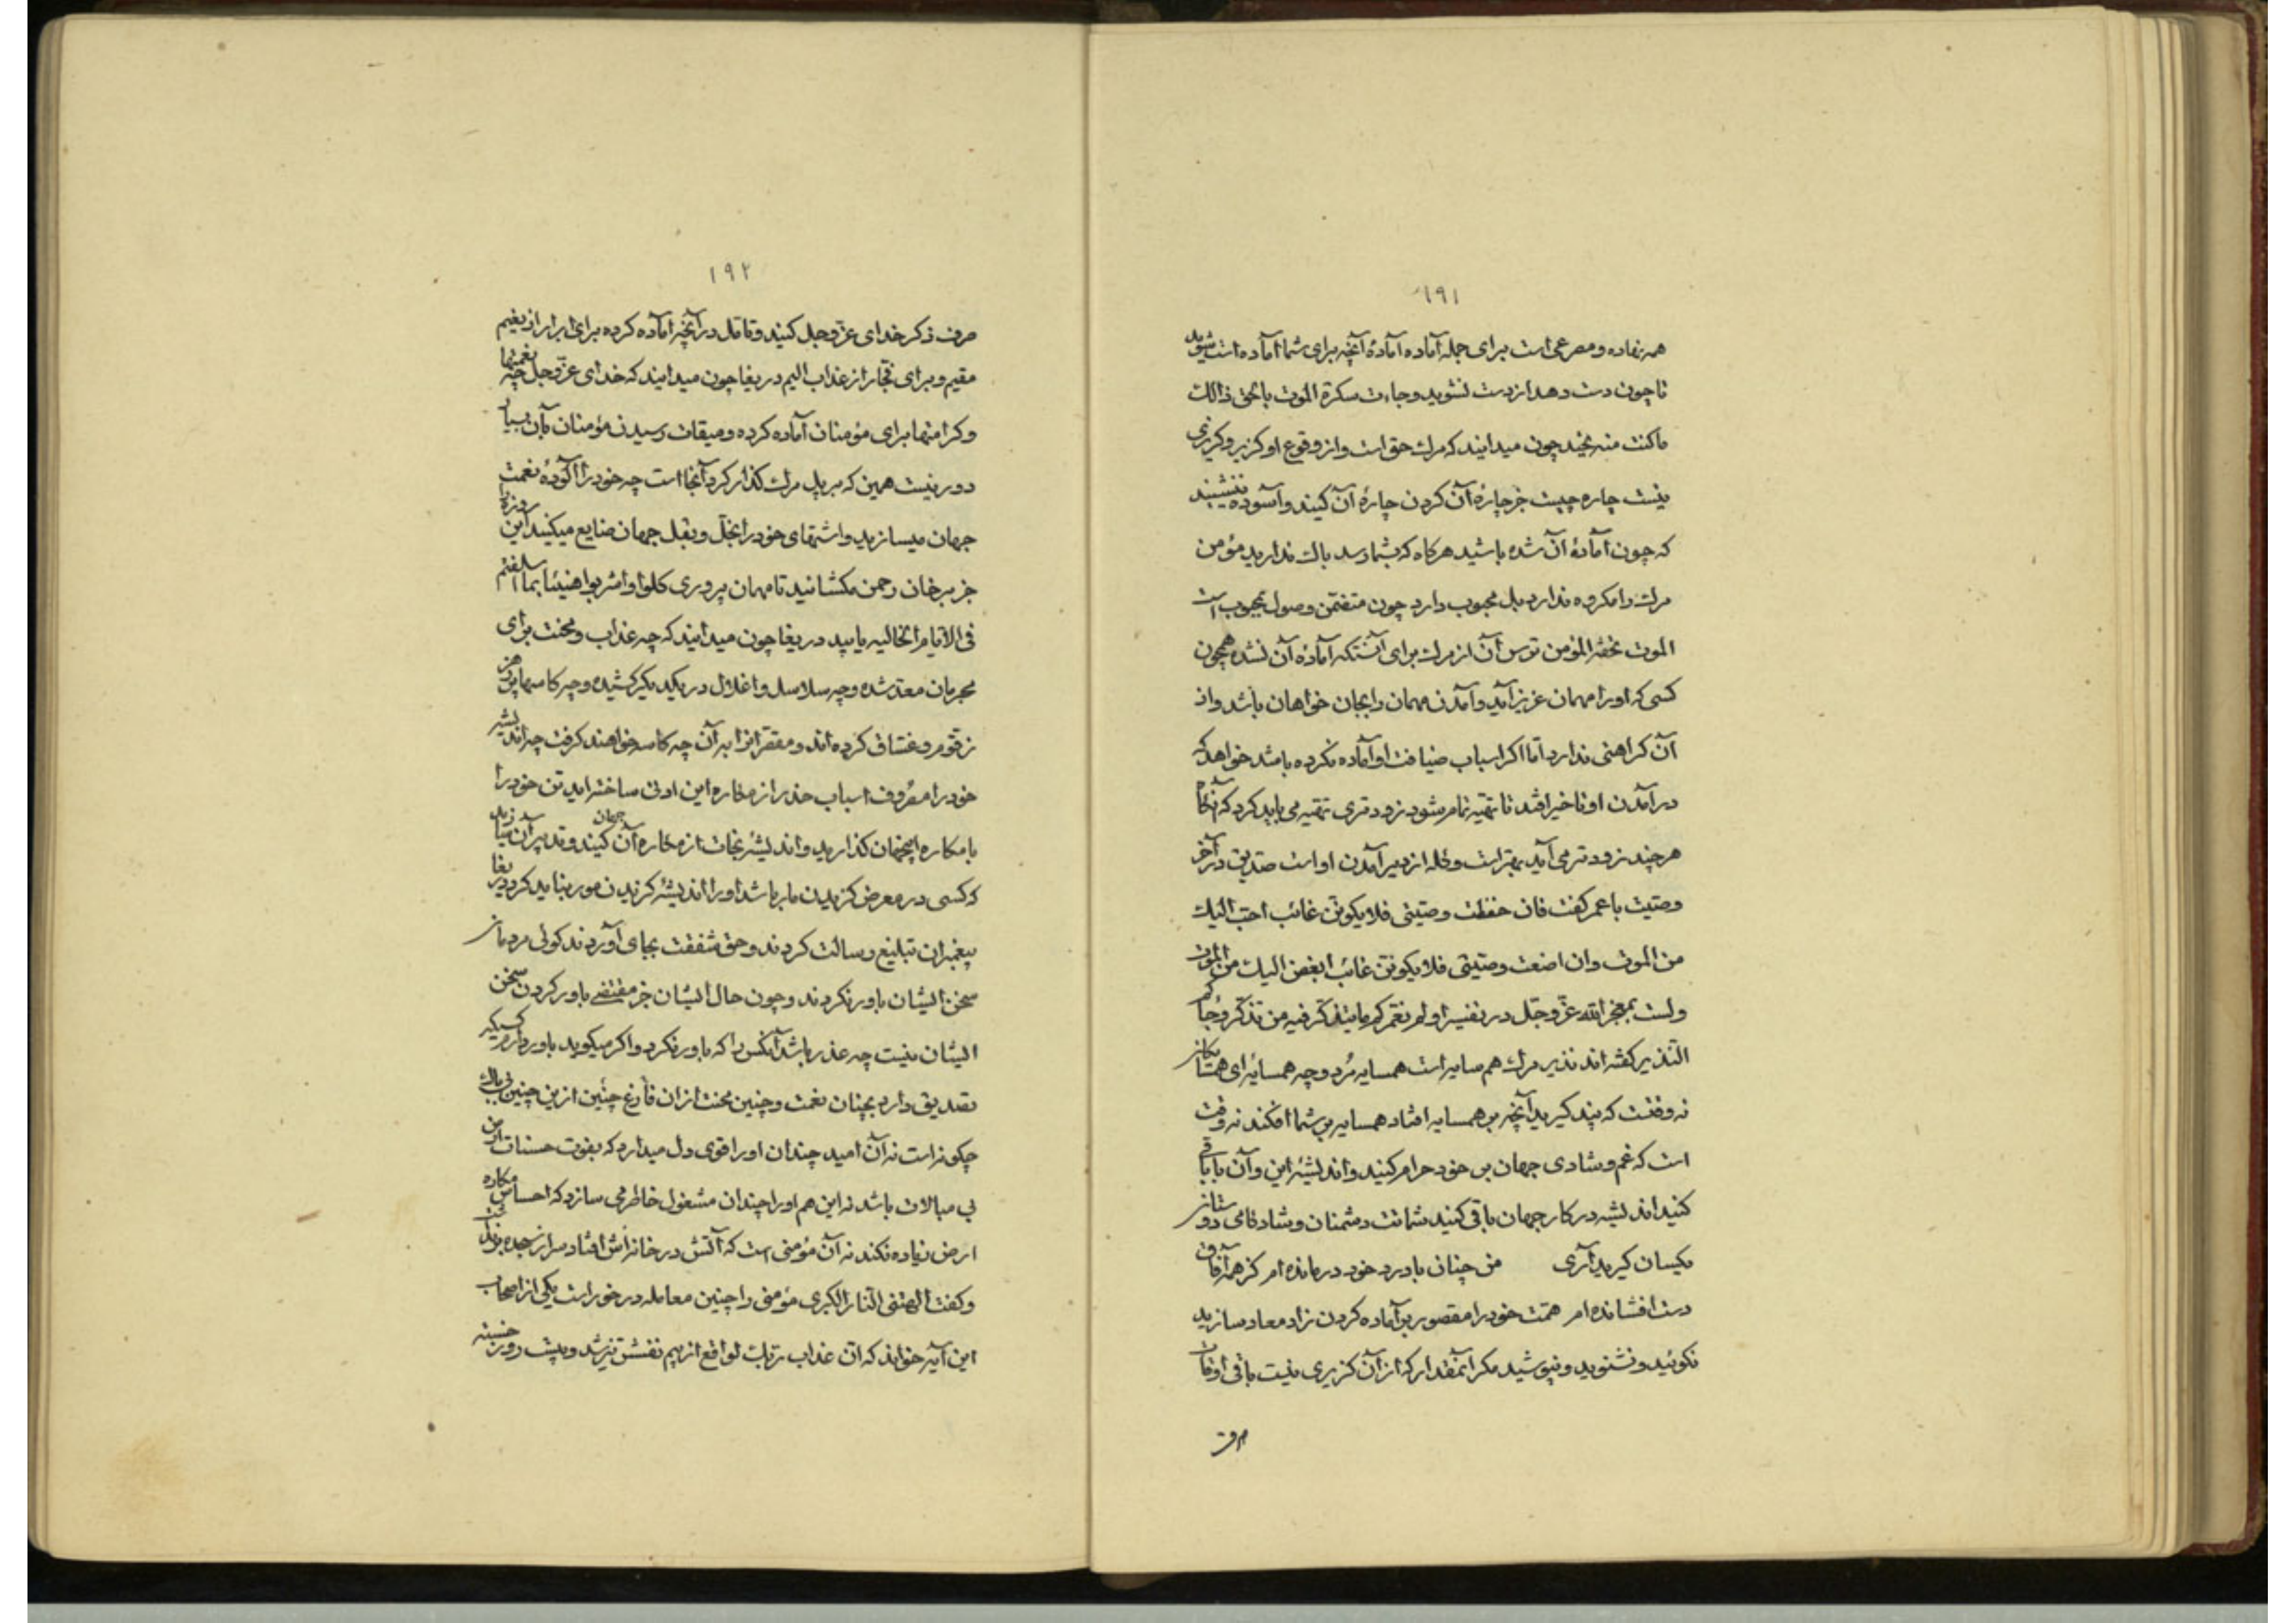 ۱۹۱
همه نهاده و مصرعی است برای جمله آماده آمادهٔ آنچه برای شما آماده است بشوید
تا چون دست دهد از دست نشوید و جاءت سکرة الموت بالحق ذالک
ماکنت منه تحید چون میدانید که مرک حق است و از وقوع او کزیر و کریزی
نیست چاره چیست جز چارهٔ آن کردن چارهٔ آن کنید و آسوده ننشینید
که چون آمادهٔ آن شده باشید هرکاه که بشما رسد باک ندارید مؤمن
مرک را مکروه ندارد بل محبوب دارد چون متضمن وصول بمحبوب است
الموت تحفة المؤمن ترس آن از مرک برای آنستکه آمادهٔ آن نشده همچون
کسی که او را مهمان عزیز آید و آمدن مهمان را بجان خواهان باشد و از
آن کراهتی ندارد اما اکر اسباب ضیافت او آماده نکرده باشد خواهد که
در آمدن او تاخیر افتد تا تهیه تمام شود زودتری تهیه می باید کرد که آنکاه
هرچند زودتر می آید بهتر است و کله از دیر آمدن او است صدیق در آخر
وصیت با عمر کفت فان حفظت وصیتی فلا یکونن غائب احب الیک
من الموت وان اضعت وصیتی فلا یکونن غائب ابغض الیک من الموت
ولست بمعجز الله عز وجل در تفسیر اولم نعمرکم ما یتذکر فیه من تذکر وجاءکم
النذیر کفته اند نذیر مرک هم سایه است همسایه مُرد و چه همسایهٔ ای همسایکان
نه وقتست که پند کیرید آنچه بر همسایه افتاد همسایه بر شما افکند نه وقت
است که غم و شادی جهان بر خود حرام کنید و اندیشهٔ این و آن با باقی
کنید اندیشه در کار جهان باقی کنید شماتت دشمنان و شادکامی دوستان
یکسان کیرید آری من چنان با درد خود درمانده ام کز همه آفاق
دست افشانده ام همّت خود را مقصور بر آماده کردن زاد معاد سازید
نکوئید و نشنوید و نپوشید مکر آنمقدار که از آن کزیری نیست باقی اوقات
۱۹۲
صرف ذکر خدای عز وجل کنید و تامل در آنچه آماده کرده برای ابرار از نعیم
مقیم و برای فجار از عذاب الیم دریغا چون میدانید که خدای عز وجل چه نعمتها
و کرامتها برای مؤمنان آماده کرده و میقات رسیدن مؤمنان بآن بسیار
دور نیست همین که بر پل مرک کذار کرد آنجا است چه خود را آلودهٔ نعمت
جهان میسازید و اشتهای خود را بخل و بقل جهان ضایع میکنید این روزه
جز بر خان رحمن مکشائید تا مهمان پروری کلوا واشربوا هنیئا بما اسلفتم
فی الایام الخالیه یابید دریغا چون میدانید که چه عذاب و محنت برای
مجرمان معد شده و چه سلاسل و اغلال در یکدیکر کشیده و چه کاسها پر از
زقوم و غساق کرده اند و مقصرانرا بر آن چه کاسه خواهند کرفت چه اندیشه
خود را مصروف اسباب حذر از مکاره این ادنی ساخته اید تن خود را
با مکاره اینجهان کذارید و اندیشهٔ نجات از مکاره آن جهان کنید و تدبیر آن سازید
که کسی در معرض کزیدن مار باشد او را اندیشهٔ کزیدن مور نباید کرد دریغا
پیغمبران تبلیغ رسالت کردند و حق شفقت بجای آوردند کوئی مردمان
سخن ایشان باور نکردند و چون حال ایشان جز مقتضی باور کردن سخن
ایشان نیست چه عذر باشد آنکس را که باور نکرد و اکر میکوید باور دارم کسیکه
تصدیق دارد بچنان نعمت و چنین محنت از آن فارغ چنین از این چنین بی باک
چکونه است نه آن امید چندان او را قوی دل میدارد که بفوت حسنات این
بی مبالات باشد نه این هم او را چندان مشغول خاطر می سازد که احساس مکاره
ارض زیاده نکند نه آن مؤمنی است که آتش در خانه اش افتاد سر از سجده
و کفت الهتنی النار الکبری مؤمنی را چنین معامله در خور است یکی از اصحاب
این آیه خواند که ان عذاب ربک لواقع از بیم نفسش تیز شد و بیست روز خسته